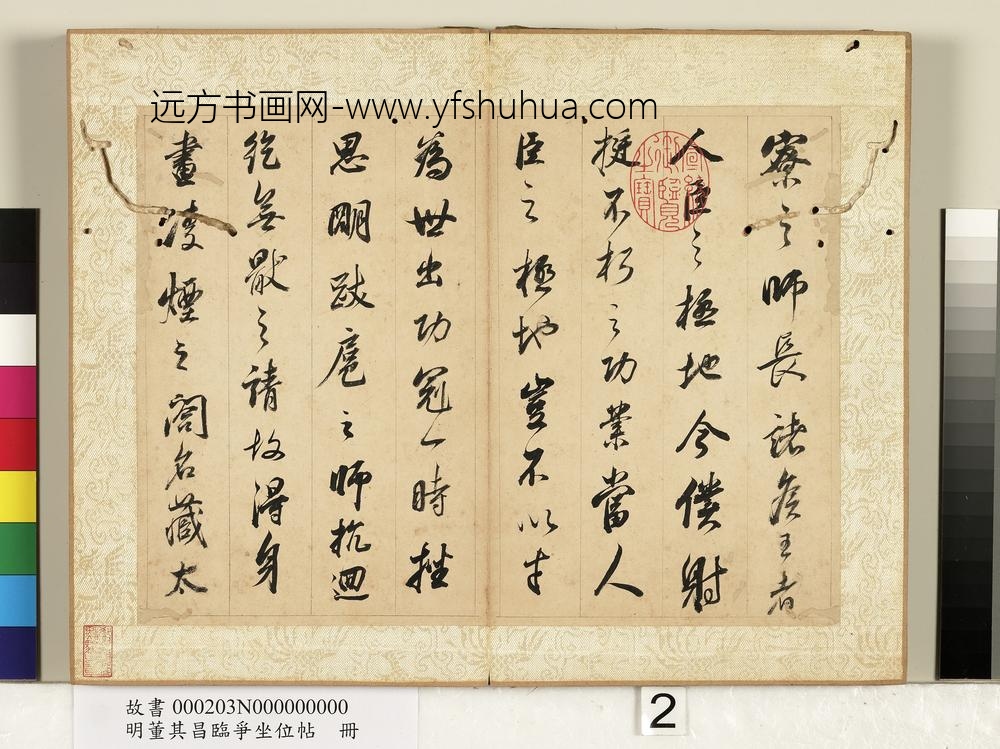 远方书画网-www.yfshuhua.com
寮之師長諸侯王者
人臣之極地今僕射
挺不朽之功業當人
臣之極地豈不以才
為世出功冠一時挫
思明跋扈之師抗迴
紇無厭之請故得身
畫淩煙之閣名藏太
故書 000203N000000000
明董其昌臨爭坐位帖 冊
2